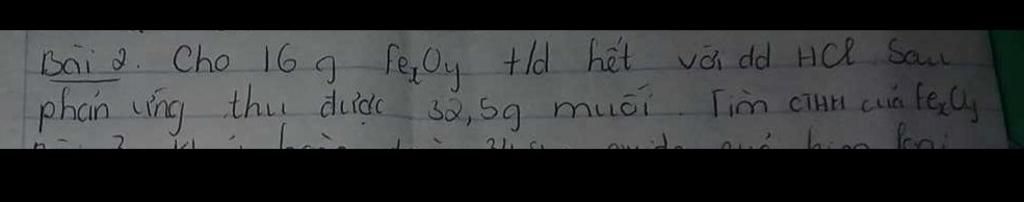 Bài 2. Cho 16 g FexOy t/d hết với dd HCl Sau
phản ứng thu được 32,5g muối. Tìm CTHH của FexOy